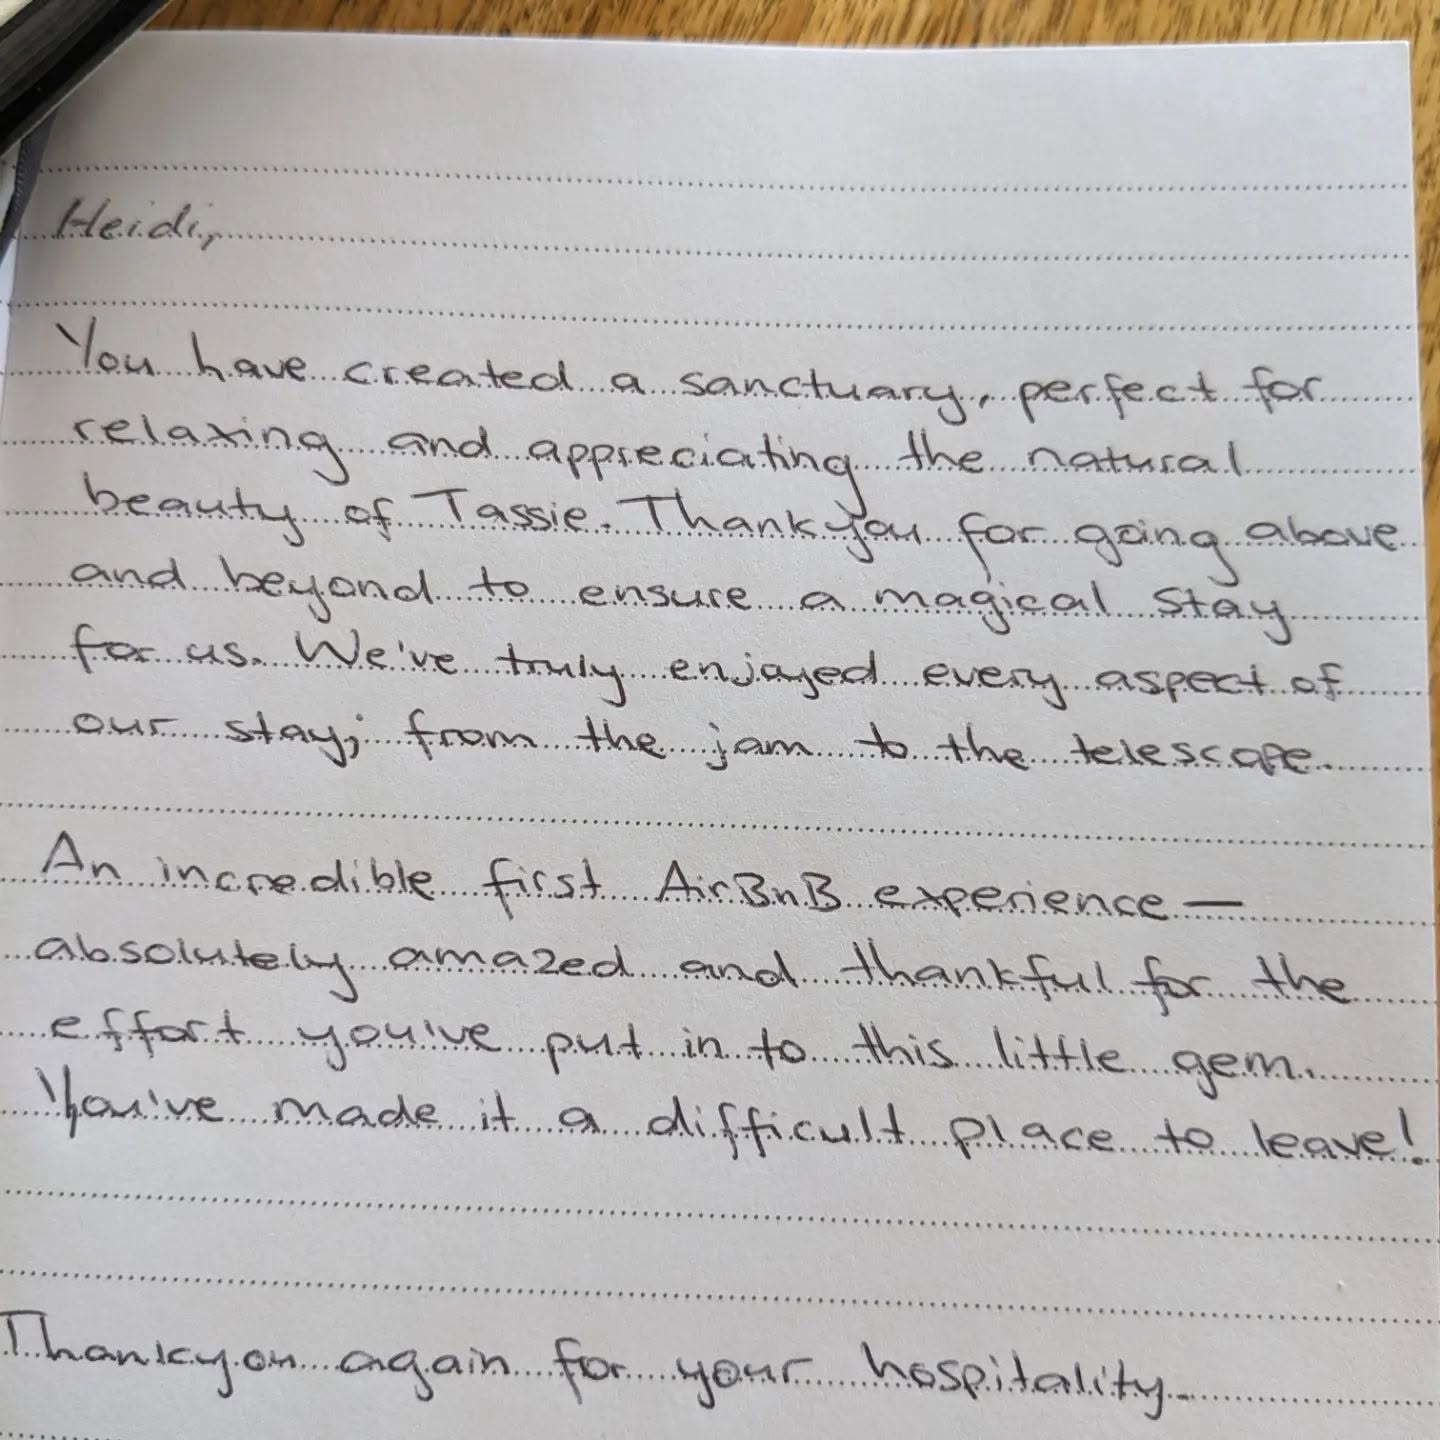 Heidi,
You have created a sanctuary, perfect for
relaxing and appreciating the natural
beauty of Tassie. Thankyou for going above
and beyond to ensure a magical stay
for us. We've truly enjoyed every aspect of
our stay; from the jam to the telescope.
An incredible first AirBnB experience —
absolutely amazed and thankful for the
effort you've put in to this little gem.
You've made it a difficult place to leave!
Thankyou again for your hospitality.